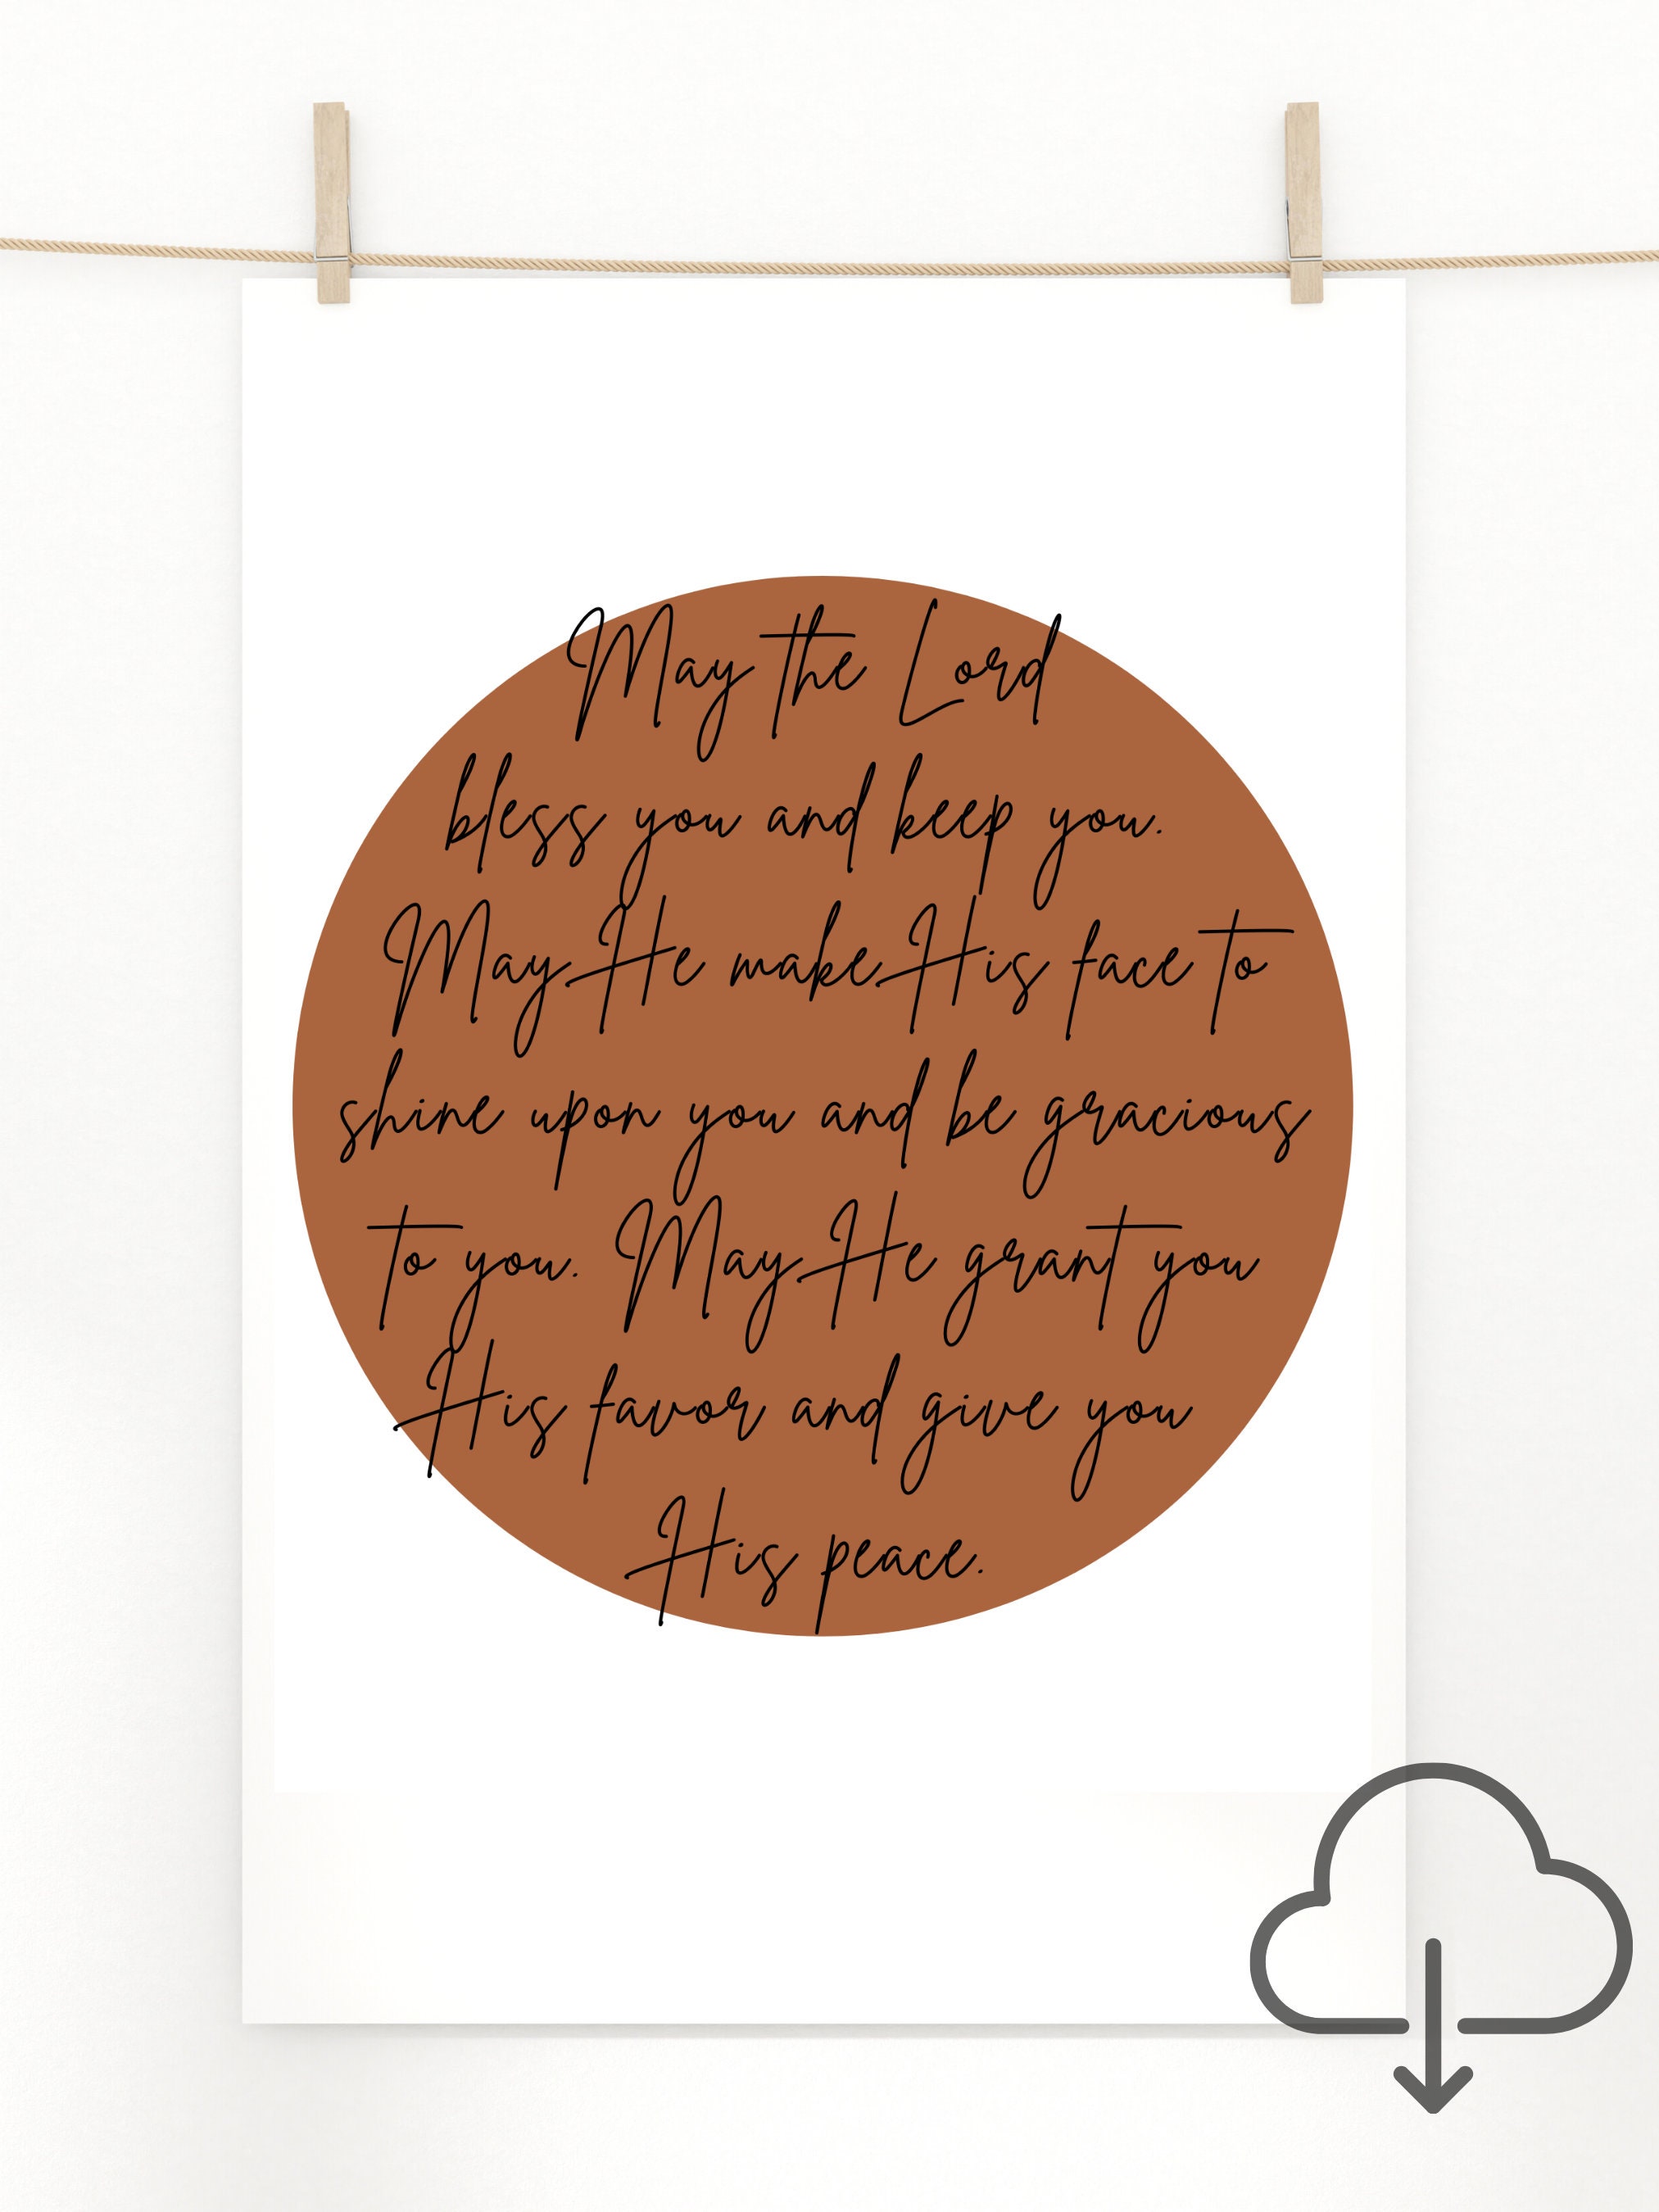 May the Lord
bless you and keep you.
May He make His face to
shine upon you and be gracious
to you. May He grant you
His favor and give you
His peace.